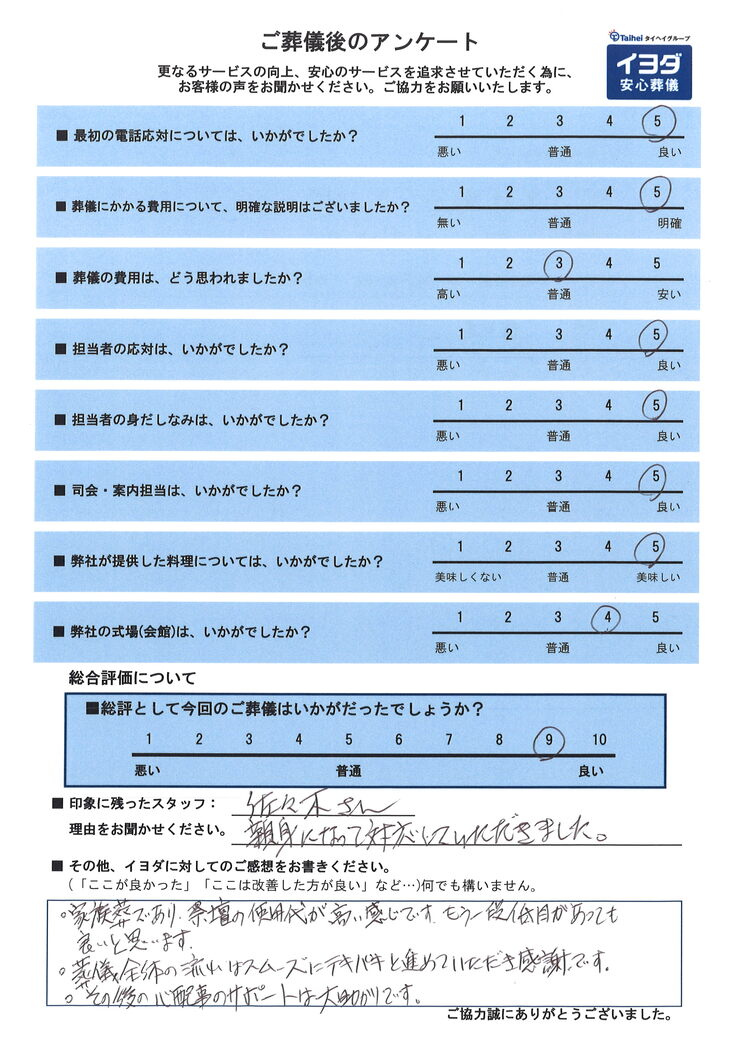 ご葬儀後のアンケート
Taihei タイヘイグループ
イヨダ
安心葬儀
更なるサービスの向上、安心のサービスを追求させていただく為に、
お客様の声をお聞かせください。ご協力をお願いいたします。
■ 最初の電話応対については、いかがでしたか?
1 2 3 4 5
悪い 普通 良い
■ 葬儀にかかる費用について、明確な説明はございましたか?
1 2 3 4 5
無い 普通 明確
■ 葬儀の費用は、どう思われましたか?
1 2 3 4 5
高い 普通 安い
■ 担当者の応対は、いかがでしたか?
1 2 3 4 5
悪い 普通 良い
■ 担当者の身だしなみは、いかがでしたか?
1 2 3 4 5
悪い 普通 良い
■ 司会・案内担当は、いかがでしたか?
1 2 3 4 5
悪い 普通 良い
■ 弊社が提供した料理については、いかがでしたか?
1 2 3 4 5
美味しくない 普通 美味しい
■ 弊社の式場(会館)は、いかがでしたか?
1 2 3 4 5
悪い 普通 良い
総合評価について
■総評として今回のご葬儀はいかがだったでしょうか?
1 2 3 4 5 6 7 8 9 10
悪い 普通 良い
■ 印象に残ったスタッフ： 佐々木さん
理由をお聞かせください。 親身になって対応していただきました。
■ その他、イヨダに対してのご感想をお書きください。
(「ここが良かった」「ここは改善した方が良い」など…)何でも構いません。
○家族葬であり、祭壇の使用代が高い感じです。もう一段低目があっても
良いと思います。
○葬儀全体の流れはスムーズにテキパキと進めていただき感謝です。
○その後の心配事のサポートは大助かりです。
ご協力誠にありがとうございました。